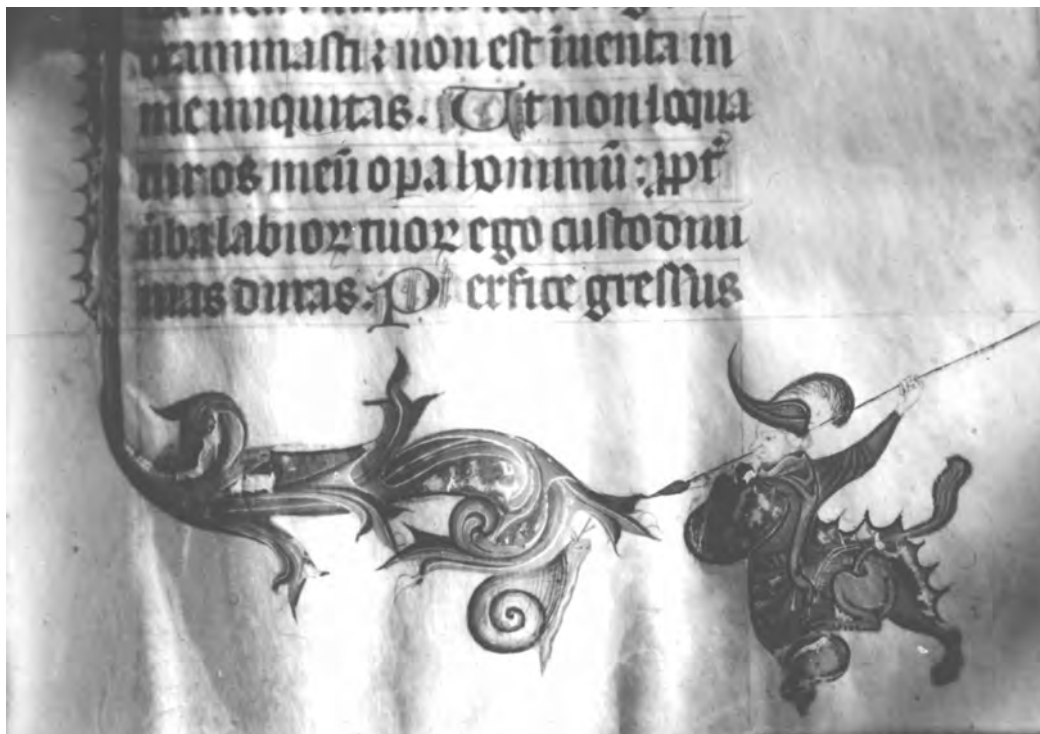 xaminasti ⁊ non est inuenta in
me iniquitas. Ut non loqua
tur os meū opa hominū : ppt̄
ūba labioꝝ tuoꝝ ego custodiui
uias duras. Perfice gressus